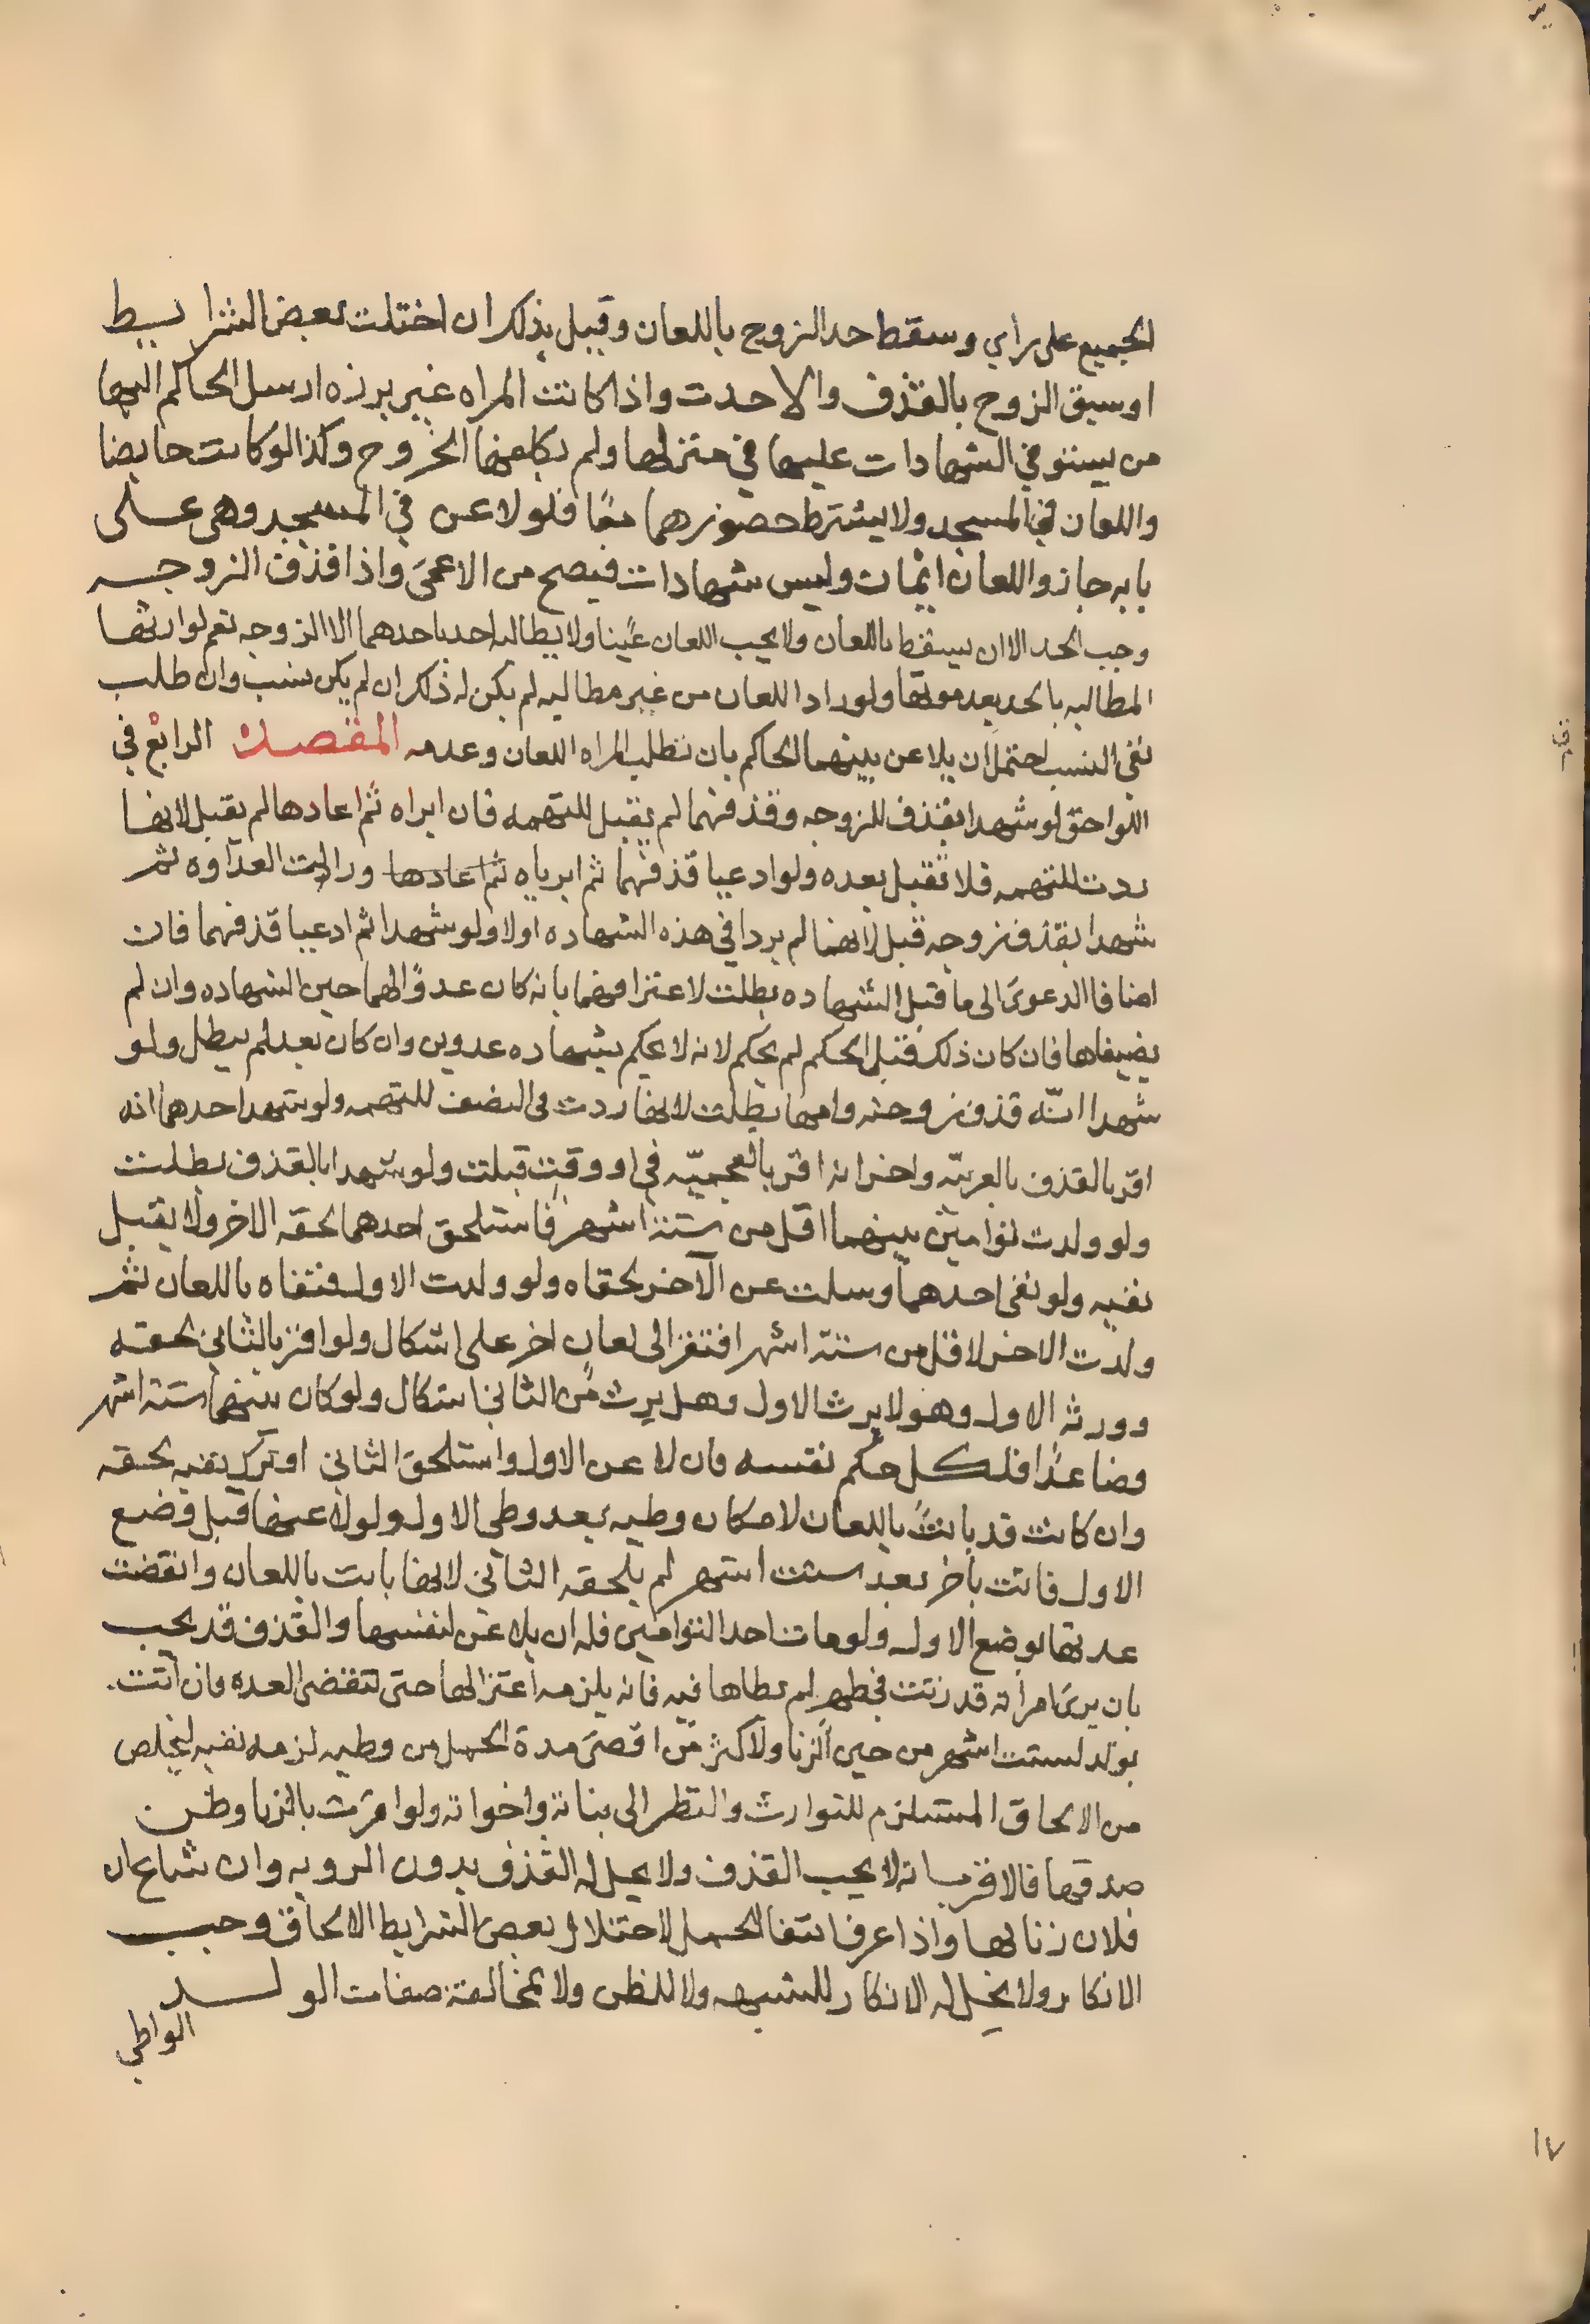 الجميع على راي وسقط حد الزوج باللعان وقيل بذلك ان اختلت بعض الشرايط
او سبق الزوج بالقذف والا حدت واذا كانت المراه غير برزه ارسل الحاكم اليها
من يستوفي الشهادات عليها في منزلها ولم يكلفها الخروج وكذا لو كانت حايضا
واللعان في المسجد ولا يشترط حضورهما معًا فلو لاعن في المسجد وهي على
بابه جاز واللعان ايمان وليس شهادات فيصح من الاعمى واذا قذف الزوجه
وجب الحد الا ان يسقط باللعان ولا يجب اللعان عينا ولا يطالبه احد باحدهما الا الزوجه نعم لوارثها
المطالبه بالحد بعد موتها ولو اراد اللعان من غير مطالبه لم يكن له ذلك ان لم يكن نسب وان طلب
نفي النسب احتمل ان يلاعن بينهما الحاكم بان تطلب المراه اللعان وعدمه المقصد الرابع في
اللواحق لو شهدا بقذف الزوجه وقذفهما لم يقبل للتهمه فان ابراه ثم اعادها لم يقبل لانها
ردت للتهمه فلا تقبل بعده ولو ادعيا قذفهما ثم ابرياه ثم اعادها وزالت العداوه ثم
شهدا بقذف زوجه قبل لانهما لم يردا في هذه الشهاده اولا ولو شهدا ثم ادعيا قذفهما فان
اضافا الدعوى الى ما قبل الشهاده بطلت لاعترافهما بانه كان عدوًا لهما حين الشهاده وان لم
يضيفاها فان كان ذلك قبل الحكم لم يحكم لانه لا يحكم بشهاده عدوين وان كان بعد لم يبطل ولو
شهدا انه قذف زوجته وامهما بطلت لانها ردت في البعض للتهمه ولو شهد احدهما انه
اقر بالقذف بالعربيّه واخر انه اقر بالعجميّه في او وقتين قبلت ولو شهدا بالقذف بطلت
ولو ولدت توامين بينهما اقل من ستة اشهر فاستلحق احدهما لحقه الاخر ولا يقبل
نفيه ولو نفى احدهما وسكت عن الآخر لحقاه ولو ولدت الاول فنفاه باللعان ثم
ولدت الاخر لاقل من ستة اشهر افتقر الى لعان اخر على اشكال ولو اقر بالثاني لحقه
وورثه الاول وهو لا يرث الاول وهل يرث من الثاني اشكال ولو كان بينهما ستة اشهر
فصاعدًا فلكل حكم نفسه فان لاعن الاول واستلحق الثاني او ترك نفيه لحقه
وان كانت قد بانت باللعان لامكان وطيه بعد وطي الاول ولو لاعنها قبل وضع
الاول فاتت باخر بعد ستت اشهر لم يلحقه الثاني لانها بانت باللعان وانقضت
عدتها بوضع الاول ولو مات احد التوامين فله ان يلاعن لنفيهما والقذف قد يجب
بان يرى امراته قد زنت في طهر لم يطاها فيه فانه يلزمه اعتزالها حتى تنقضي العده فان اتت
بولد لستت اشهر من حين الزنا ولاكثر من اقصى مدة الحمل من وطيه لزمه نفيه ليخلص
من الالحاق المستلزم للتوارث والنظر الى بناته واخواته ولو اقرت بالزنا وظن
صدقها فالاقرب انه لا يجب القذف ولا يحل له القذف بدون الرويه وان شاع ان
فلان زنا بها واذا عرف انتفا الحمل لاختلال بعض الشرايط الالحاق وجب
الانكار ولا يحل له الانكار للشبهه ولا للظن ولا بمخالفة صفات الولد
الواطي
١٧